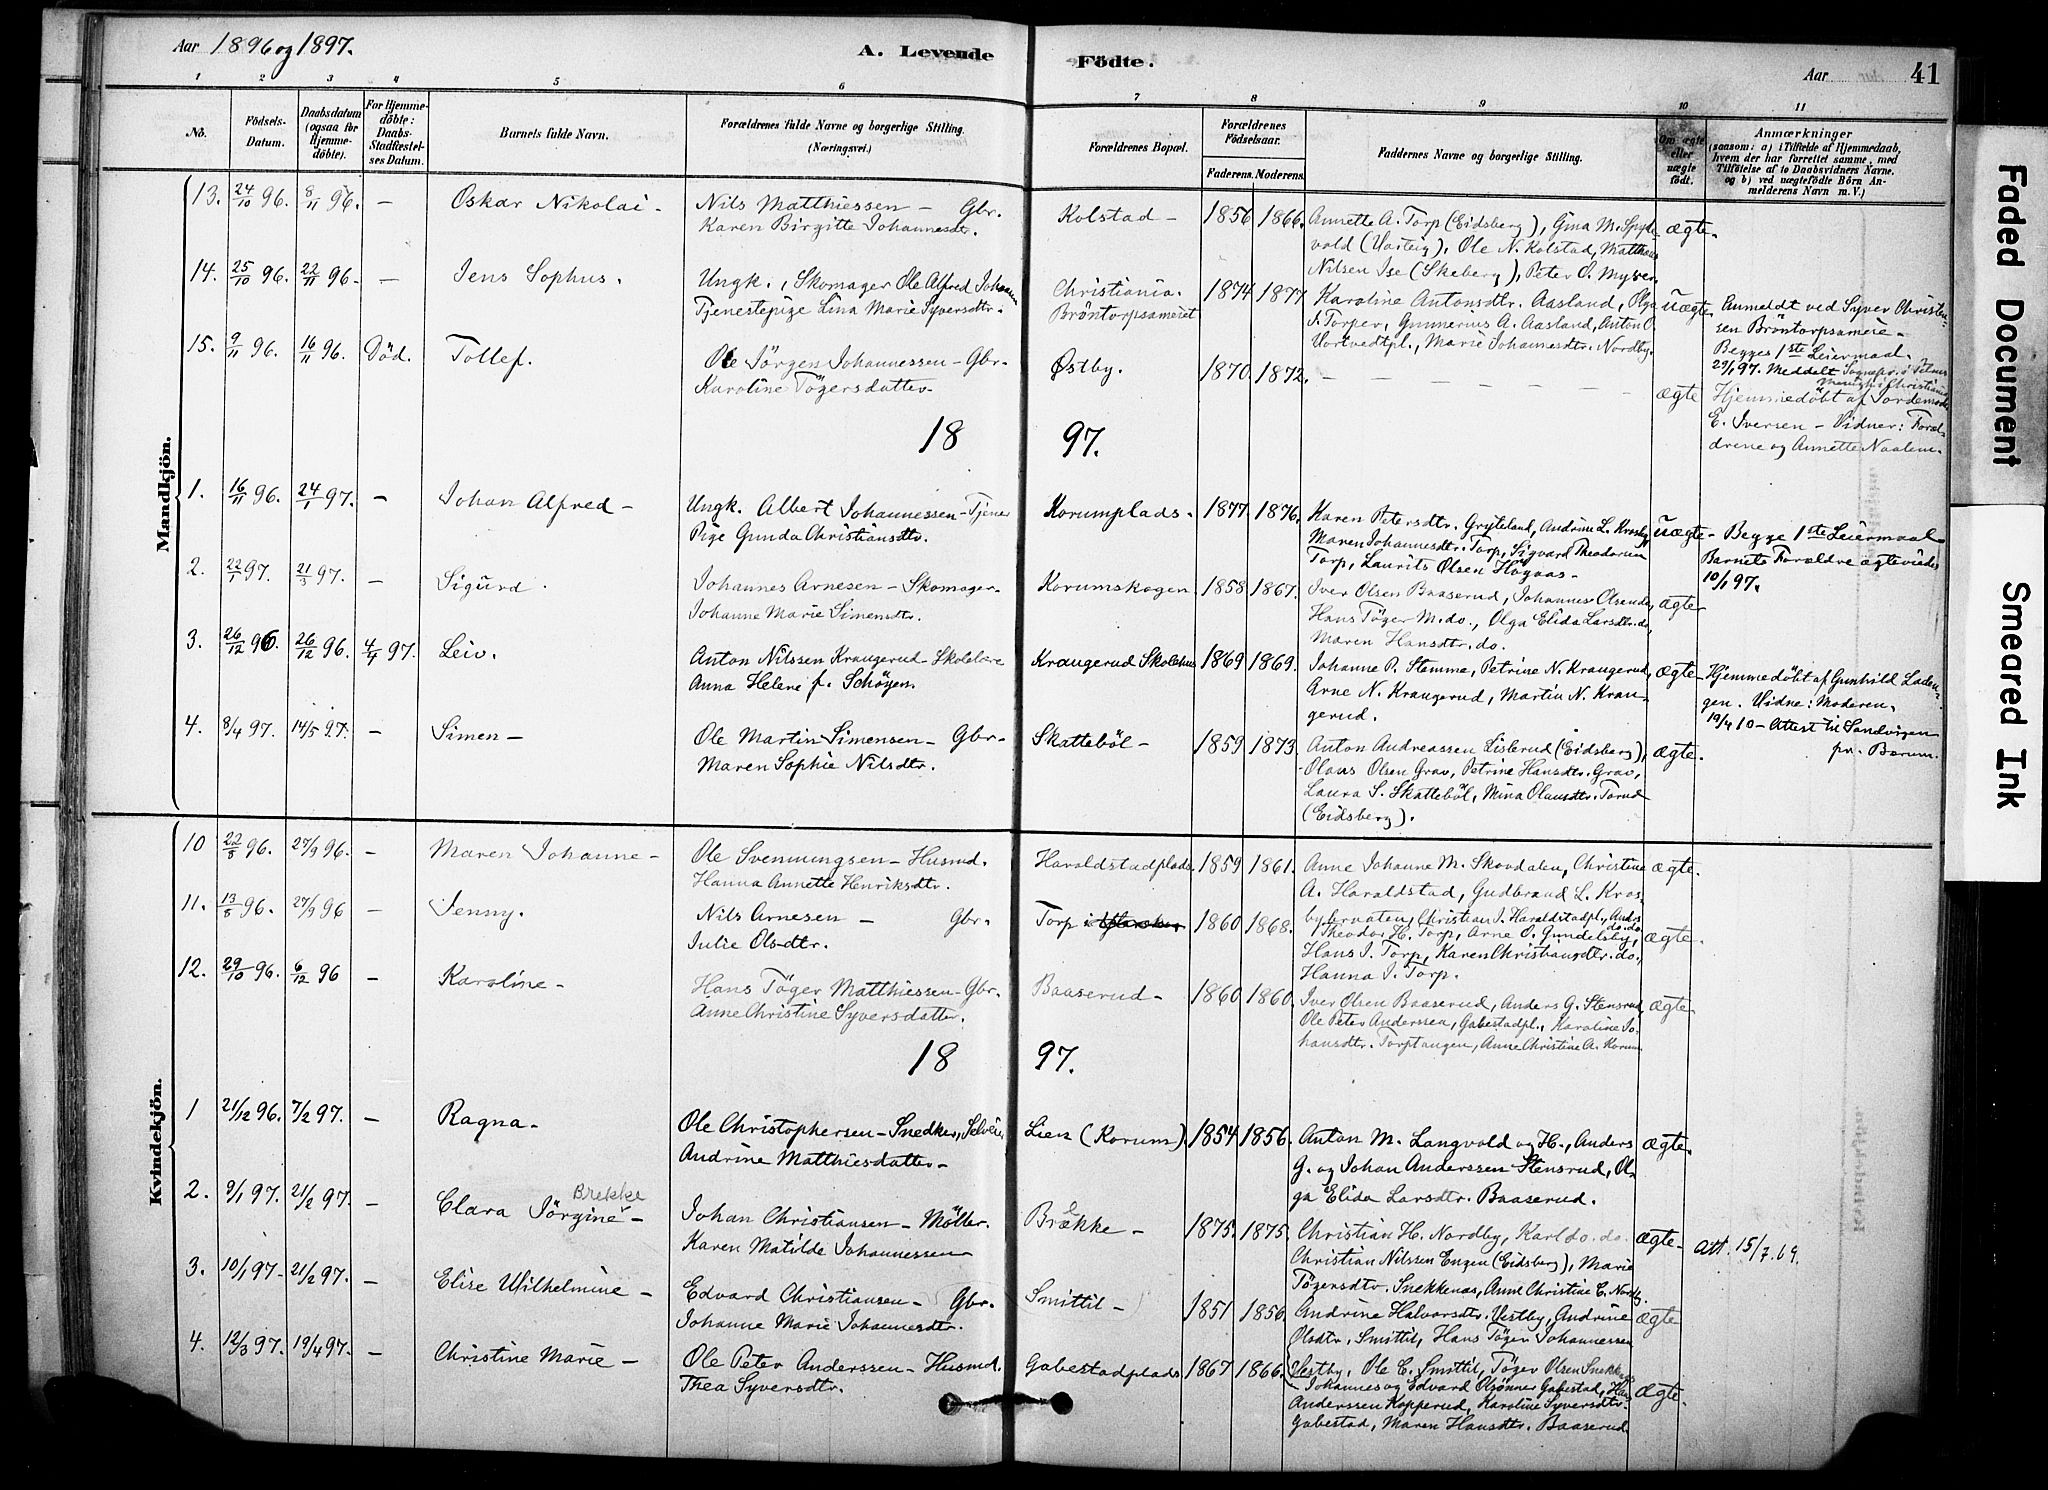 Aar 1896 og 1897.
A. Levende Fødte.
Aar 41
1 2 3 4 5 6 7 8 9 10 11
No.
Fødsels-Datum.
Daabsdatum (ogsaa for Hjemme-døbte).
For Hjemme-døbte: Daabs-Stadfæstel-ses Datum.
Barnets fulde Navn.
Forældrenes fulde Navne og borgerlige Stilling. (Næringsvei.)
Forældrenes Bopæl.
Forældrenes Fødselsaar.
Faderens. Moderens.
Faddernes Navne og borgerlige Stilling.
Om ægte eller uægte født.
Anmærkninger
(saasom: a) i Tilfælde af Hjemmedaab, hvem der har forrettet samme, med Tilføielse af to Daabsvidners Navne, og b) ved uægtefødte Børn Anmelderens Navn m. V.)
Mandkjön.
13. 24/10 96. 8/11 96. — Oskar Nikolai - Nils Matthiessen - Gbr. Kolstad - 1856 1866. Annette A. Torp (Eidsberg), Gina M. Spyde- ægte.
Karen Birgitte Johannesdtr. vold (Varteig), Ole N. Kolstad, Matthias
Nilsen Ise (Skeberg), Peter O. Myhrer.
14. 25/10 96. 22/11 96. — Jens Sophus. Ungk., Skomager Ole Alfred Johansen Christiania. 1874 1877 Karoline Antonsdtr. Aasland, Olga uægte Anmeldt ved Syver Christen-
Tjenestepige Lina Marie Syversdtr. Bröntorpsameiet J. Torper, Gunnerius A. Aasland, Anton O. sen Bröntorpsameie -
Vortvedtpl., Marie Johannesdtr. Nordby. Begges 1ste Leiermaal.
29/1 97. Meddelt Sognepr. i Petrus Menigh. i Christiania
15. 9/11 96. 16/11 96. Död. Tollef. Ole Jörgen Johannessen - Gbr. Østby. 1870. 1872. — — — — — — ægte Hjemmedöbt af Jordemoder
Karoline Tögersdatter. E. Iversen - Vidner: Foræl-
drene og Annette Naalem.
18 97.
1. 16/11 96. 24/1 97. — Johan Alfred - Ungk. Albert Johannessen - Tjener Korumplads. 1877. 1876. Karen Petersdtr. Gryteland, Andrine L. Krosby, uægte - Begge 1ste Leiermaal
Pige Gunda Christiansdtr. Maren Johannesdtr. Torp, Sigvard Theodorsen Barnets Forældre ægteviede
Torp, Laurits Olsen Högaas - 10/1 97.
2. 22/1 97. 21/3 97. — Sigurd. Johannes Arnesen - Skomager - Korumskogen 1858 1867. Iver Olsen Baaserud, Johannes Olsen do, ægte
Johanne Marie Simensdtr. Hans Töger M. do., Olga Elida Larsdtr. do,
Maren Hansdtr. do.
3. 26/12 96. 26/12 96. 4/4 97. Leiv. Anton Nilssen Kraugerud Skolelærer Kraugerud Skolehus 1869 1869. Johanne P. Stemme, Petrine N. Kraugerud, ægte - Hjemmedöbt af Gunhild Laden-
Anna Helene f. Schöyen. Arne N. Kraugerud, Martin N. Krau- gen. Vidne: Moderen.
gerud. 19/4 10 - Attest til Sandvigen
4. 8/4 97. 14/5 97. — Simen - Ole Martin Simensen - Gbr - Skatteböl - 1859 1873. Anton Andreassen Lislerud (Eidsberg), ægte. pr. Bærum.
Maren Sophie Nilsdtr. Olaus Olsen Grav, Petrine Hansdtr. Grav,
Laura S. Skatteböl, Mina Olausdtr. Torud
(Eidsberg).
Kvindekjön.
10 22/8 96. 27/9 96. — Maren Johanne - Ole Svenningsen - Husmd. Haraldstadplads. 1859 1861. Anne Johanne M. Skovdalen, Christine ægte.
Hanna Annette Henriksdtr. A. Haraldstad, Gudbrand L. Kros-
bybraaten, Christian J. Haraldstadpl., Anders do. do.
11. 13/8 96. 27/9 96 — Jenny. Nils Arnesen - Gbr. Torp i 1860 1868. Theodor H. Torp, Arne O. Gundelsby, ægte.
Julie Olsdtr. Hans J. Torp, Karen Christiansdtr. do.,
Hanna J. Torp.
12. 29/10 96. 6/12 96 — Karoline - Hans Töger Matthiessen - Gbr. Baaserud - 1860 1860. Iver Olsen Baaserud, Anders G. Stensrud, ægte.
Anne Christine Syversdatter. Ole Peter Anderssen, Gabestadpl., Karoline Jo-
hansdtr. Torptangen, Anne Christine A. Korum
18 97.
1 21/12 96. 7/2 97. — Ragna - Ole Christophersen - Snedker, Selveier Lien (Korum). 1854. 1856. Anton M. Langvold og H., Anders ægte.
Andrine Matthiesdatter - G. og Johan Anderssen Stensrud, Ol-
ga Elida Larsdtr. Baaserud.
2. 9/1 97. 21/2 97. — Clara Jörgine - Brekke Johan Christiansen - Möller. Brække - 1875. 1875. Christian H. Nordby, Karl do. do. ægte - Att. 15/7.69.
Karen Matilde Johannessen Christian Nilssen Engen (Eidsberg), Marie
Tögersdtr. Snekkenæs, Anne Christine E. Nordby.
3. 10/1 97 - 21/2 97. — Elise Wilhelmine - Edvard Christiansen - Gbr. Smittil - 1851 1856. Andrine Halvorsdtr. Vestby, Andrine ægte
Johanne Marie Johannesdtr. Olsdtr. Smittil, Hans Töger Johannessen
Vestby, Ole E. Smittil, Töger Olsen Snekkenæs
4. 12/3 97. 19/4 97. — Christine Marie - Ole Peter Anderssen - Husmd. Gabestadplads 1867 1866. Johannes og Edvard Olsønner Gabestad, Hans ægte.
Thea Syversdtr. Anderssen Kopperud, Karoline Syversdtr.
Gabestad, Maren Hansdtr. Baaserud.
Faded Document
Smeared Ink